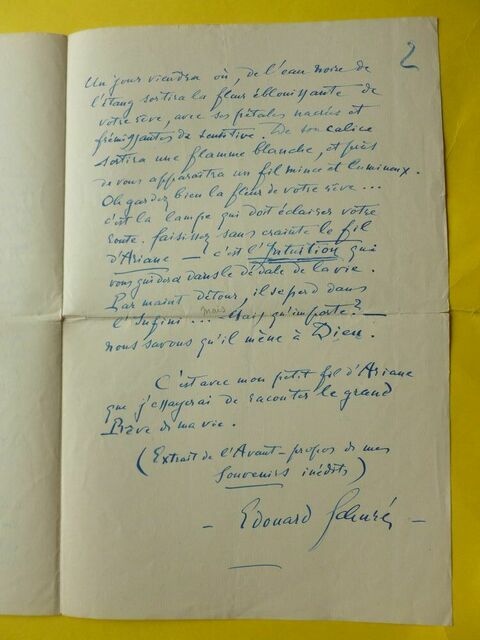 2
Un jour viendra où, de l'eau noire de
l'étang sortira la fleur éblouissante de
votre rêve, avec ses pétales nacrés et
frémissantes de sensitive. De son calice
sortira une flamme blanche, et près
de vous apparaîtra un fil mince et lumineux.
Oh gardez bien la fleur de votre rêve...
c'est la lampe qui doit éclairer votre
route. Saisissez sans crainte le fil
d'Ariane — c'est l'Intuition qui
vous guidera dans le dédale de la vie.
Par maint détour, il se perd dans
mais
l'Infini... Mais qu'importe? —
nous savons qu'il mène à Dieu.
C'est avec mon petit fil d'Ariane
que j'essayerai de raconter le grand
Rêve de ma vie.
(Extrait de l'Avant-propos de mes
Souvenirs inédits)
— Edouard Schuré —